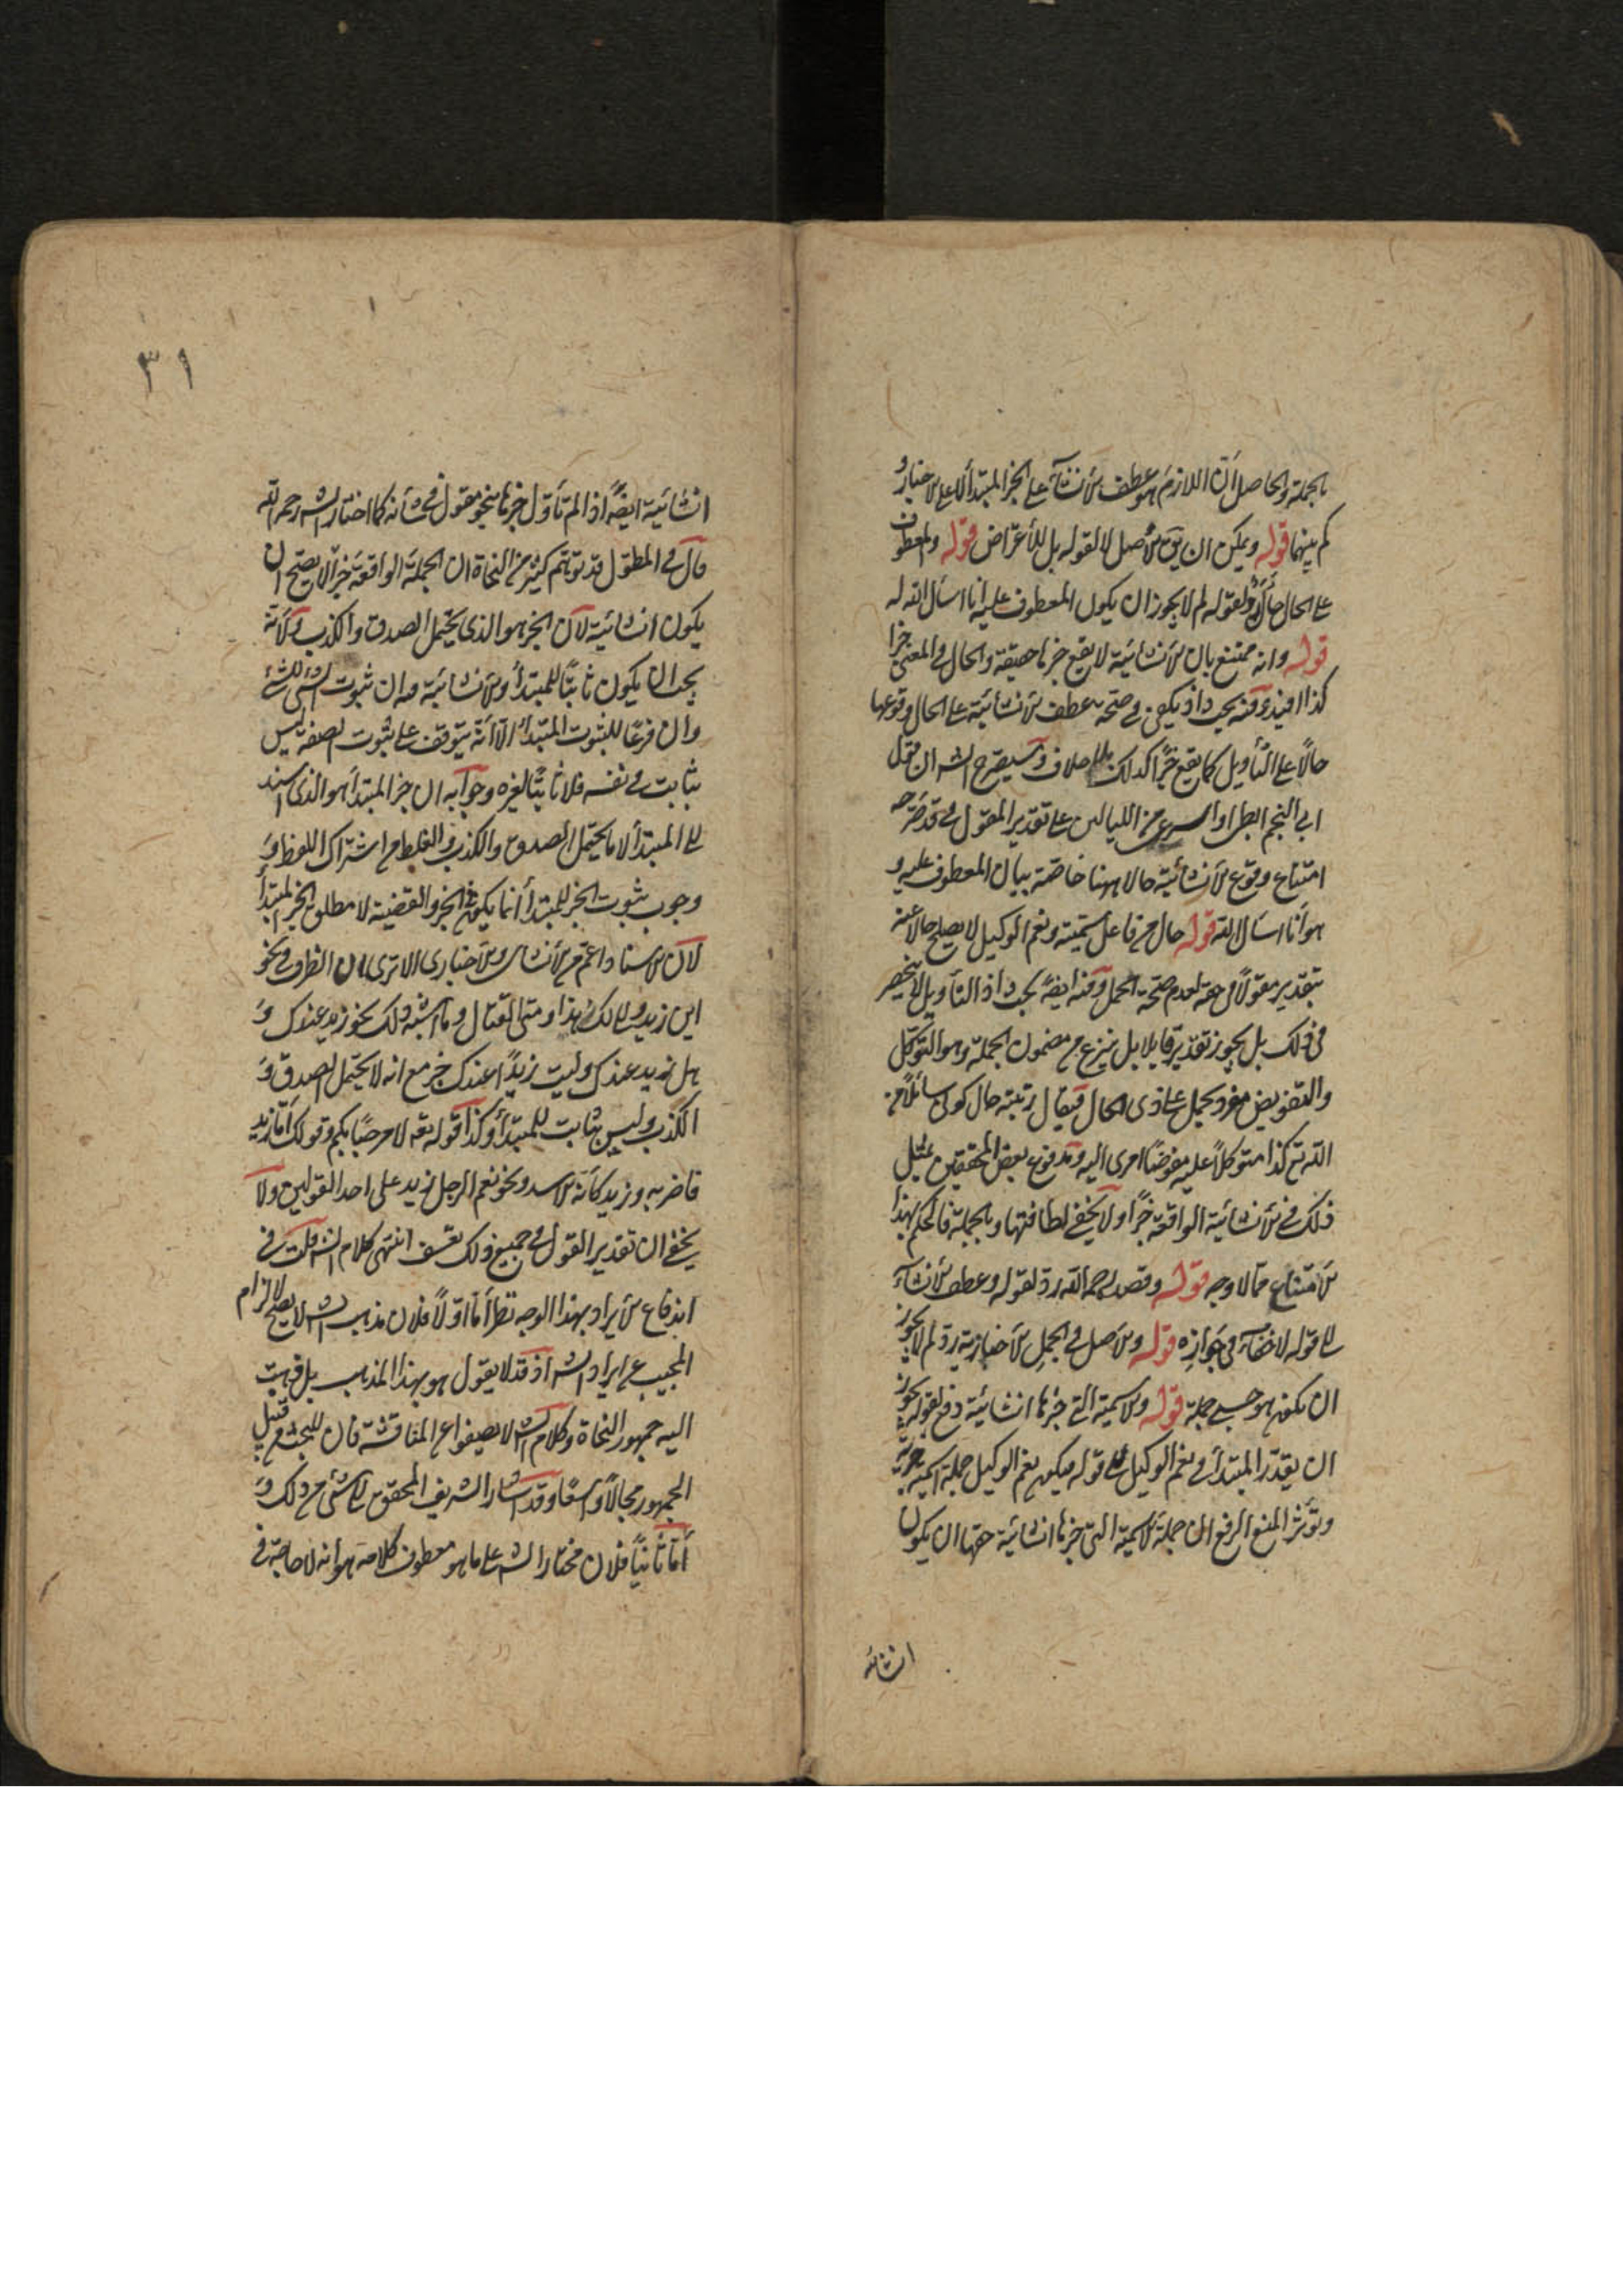 بالجملة والحاصل ان اللازم هو عطف الانشاء على الخبر المبتدأ لا على الاخبار و
كم بينهما قوله ويمكن ان يق الاصل لا لقوله بل للأعتراض قوله والمعطوف
على الحال حال ولقوله لم لا يجوز ان يكون المعطوف عليه انا اسأل الله له
قوله وانه ممتنع بان الانشائية لا يقع خبرا حقيقة والحال في المعنى خبر
كذا افيد وفيه بحث اذ يكفى في صحة عطف الانشائية على الحال وقوعها
حالًا على التأويل كما يقع خبرًا كذلك بلا خلاف وسيصرح الش ان قول
ابي النجم ابطئ او اسرعى من الليالى على تقدير المقول في قد صرّح
امتناع وقوع الانشائية حالا ههنا خاصّة ببيان المعطوف عليه و
هو أنا اسأل الله قوله حال من فاعل سميته ونعم الوكيل لا يصلح حالا عنه
بتقدير مقولًا في حقه لعدم صحّة الحمل وفيه ايضًا بحث اذ التأويل لا ينحصر
فى ذلك بل يجوز تقدير قايلا بل ينزع من مضمون الجملة وهو التوكل
والتفويض مفرد يحمل على ذى الحال فيقال رتبته حال كونى سائلًا من
الله تع كذا متوكلًا عليه مفوضًا امرى اليه وقد فوع بعض المحققين بمثل
ذلك في الانشائية الواقعة خبرًا ولا يخفى لطافتها وبالجملة فالحكم بهذا
الامتناع مما لا وجه قوله وقصد رحمه الله ردّ لقوله وعطف الانشاء
الى قوله لا خفاء فى جوازه قوله والاصل في الجمل الاخبارية ردّ لم لا يجوز
ان يكون هو حسبى جملة قوله والاسمية التي خبرها انشائية دفع لقوله يجوز
ان يقدّر المبتدأ في نعم الوكيل الى قوله فيكون نعم الوكيل جملة اسمية خبرية
وتؤثر المنع الرفع ان جملة الاسميّة التى خبرها انشائية حقها ان يكون
انشائية
٣١
انشائية ايضًا اذا لم تأوّل خبرها بنحو مقول فى شأنه كما اختار الش رحمه الله
قال في المطول قد توهّم كثير من النحاة ان الجملة الواقعة خبرًا لا يصحّ ان
يكون انشائية لان الخبر هو الذى يحتمل الصدق والكذب ولانه
يجب ان يكون ثابتًا للمبتدأ والانشائية وان ثبوت الشئ للشئ
وان فرعًا للثبوت المبتدأ الا انه يتوقف على ثبوت الصفة ليس
بثابت في نفسه فلا ثابتًا لغيره وجوابه ان خبر المبتدأ هو الذى اسند
الى المبتدأ لا ما يحتمل الصدق والكذب والغلط من اشتراك اللفظ و
وجوب ثبوت الخبر للمبتدأ انما يكون في الخبر والقضية لا مطلق الخبر المبتدأ
لان الاسناد اعم من الانشاى والاخبارى الا ترى ان الظرف في نحو
اين زيد وانى لك هذا ومتى القتال وما اشبه ذلك نحو زيد عندك و
هل زيد عندك وليت زيدًا عندك خبر مع انه لا يحتمل الصدق و
الكذب وليس بثابت للمبتدأ وكذا قوله تع لا مرحبًا بكم وقولك أمّا زيد
فاضربه وزيد كأنه الاسد ونحو نعم الرجل زيد على احد القولين ولا
يخفى ان تقدير القول في جميع ذلك تعسّف انتهى كلام الش قلت فى
اندفاع الايراد بهذا الوجه نظر أمّا اوّلًا فلان مذهب الش لا يصلح لالزام
المجيب عن ايراد الش اذ قد لا يقول هو بهذا المذهب بل ذهبت
اليه جمهور النحاة وكلام الش لا يصيفوا عن المناقشة فان للبحث من قبل
الجمهور مجالًا واسعًا وقد اشار الشريف المحقق الى شئ من ذلك و
أمّا ثانيًا فلان مختار الش على ما هو معطوف كلامه هو انه لا حاجة فى